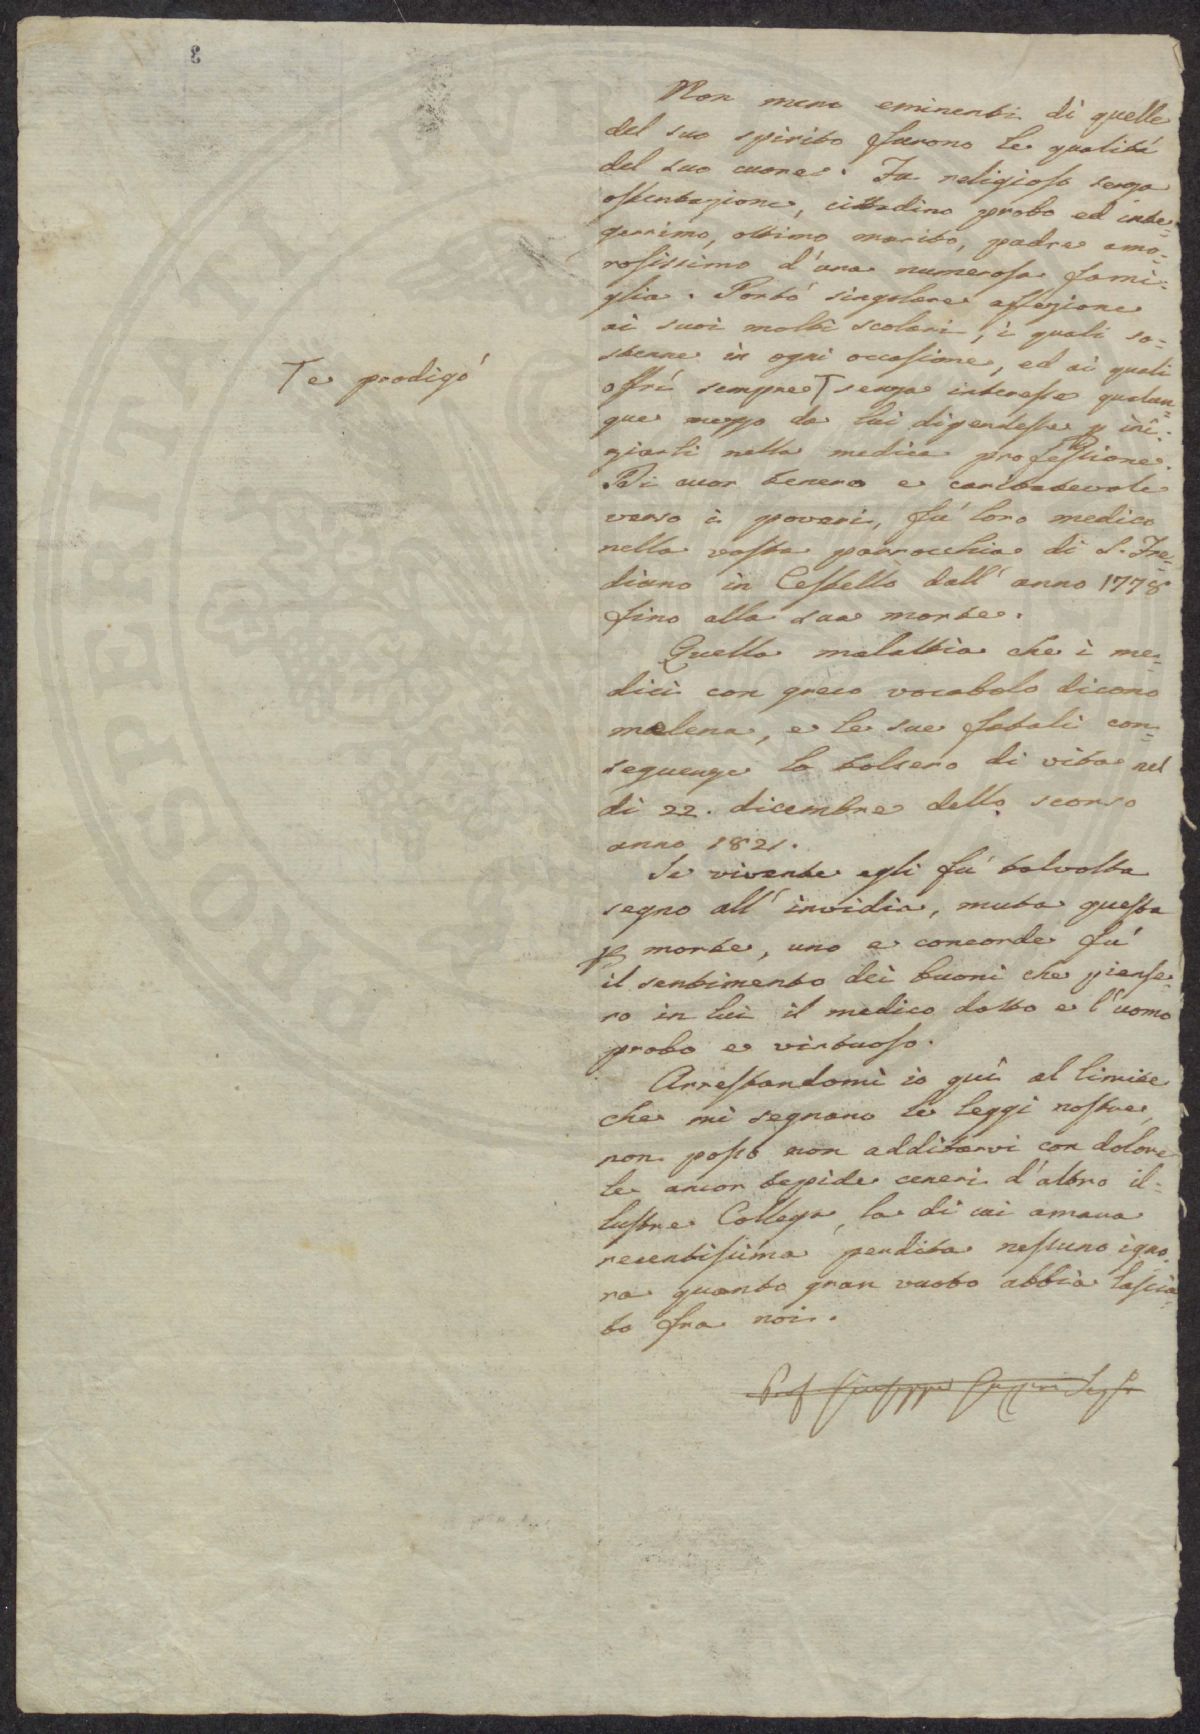 Non meno eminenti di quelle
del suo spirito furono le qualità
del suo cuore. Fu religioso senza
ostentazione, cittadino probo ed inte=
gerrimo, ottimo marito, padre amo=
rosissimo d'una numerosa fami=
glia. Portò singolare affezione
ai suoi molti scolari, i quali so=
stenne in ogni occasione, ed ai quali
offrí sempre T senza interesse qualun=
que mezzo da lui dipendesse p ini=
ziarli nella medica professione.
Di cuor tenero e caritatevole
verso i poveri, fu' loro medico
nella vasta parrocchia di S. Fre=
diano in Cestello dall' anno 1778
fino alla sua morte.
T e prodigó
Quella malattia che i me=
dici con greco vocabolo dicono
mælena, e le sue fatali con=
seguenze lo tolsero di vita nel
dì 22. dicembre dello scorso
anno 1821.
Se vivente egli fu' talvolta
segno all' invidia, muta questa
p morte, uno e concorde fu'
il sentimento dei buoni che pianse=
ro in lui il medico dotto e l'uomo
probo e virtuoso.
Arrestandomi io quì al limite
che mi segnano le leggi nostre,
non posso non additarvi con dolore
le ancor tepide ceneri d'altro il=
lustre Collega, la di cui amara
recentissima perdita nessuno igno=
ra quanto gran vuoto abbia lascia=
to fra noi.